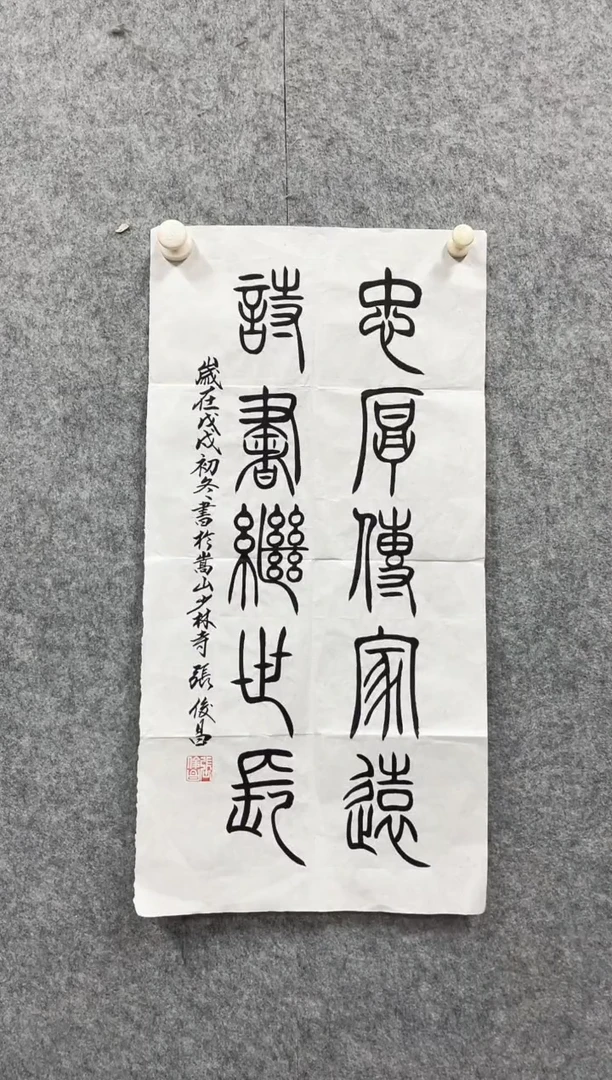 忠厚傳家遠
詩書繼世長
歲在戊戌初冬書於嵩山少林寺 張俊昌